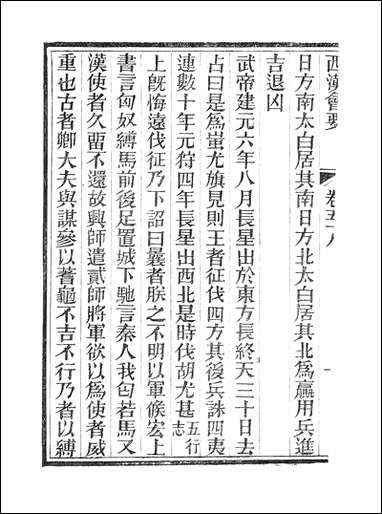 西漢會要 卷五十八 一
日方南太白居其南日方北太白居其北爲贏用兵進
吉退凶
武帝建元六年八月長星出於東方長終天三十日去
占曰是爲蚩尤旗見則王者征伐四方其後兵誅四夷
連數十年元狩四年長星出西北是時伐胡尤甚五行志
上旣悔遠伐征乃下詔曰曩者朕之不明以軍候宏上
書言匈奴縛馬前後足置城下馳言秦人我匄若馬又
漢使者久留不還故興師遣貳師將軍欲以爲使者威
重也古者卿大夫與謀參以蓍龜不吉不行乃者以縛